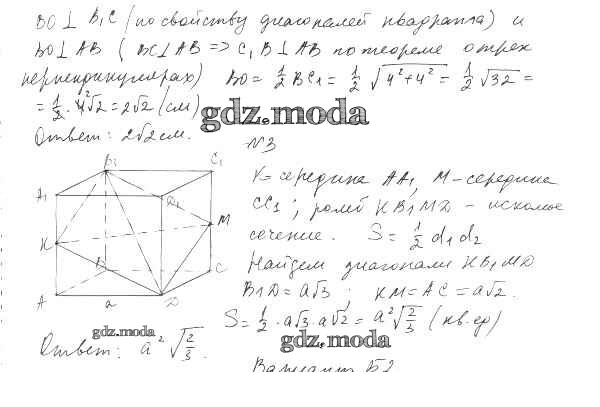 BO ⊥ B₁C (по свойству диагоналей квадрата) и
BO ⊥ AB (BC ⊥ AB => C₁B ⊥ AB по теореме о трех
перпендикулярах) BO = 1/2 BC₁ = 1/2 √(4²+4²) = 1/2 √32 =
= 1/2 · 4√2 = 2√2 (см)
gdz.moda
Ответ: 2√2 см.
№3
B₁ C₁
A₁ D₁
K M
B C
A a D
K - середина AA₁, M - середина
CC₁; ромб KB₁MD - искомое
сечение. S = 1/2 d₁d₂
Найдем диагонали KB₁MD
B₁D = a√3; KM = AC = a√2.
S = 1/2 · a√3 · a√2 = a²√(2/3) (кв.ер)
gdz.moda
gdz.moda
Ответ: a²√(2/3).
Вариант Б2